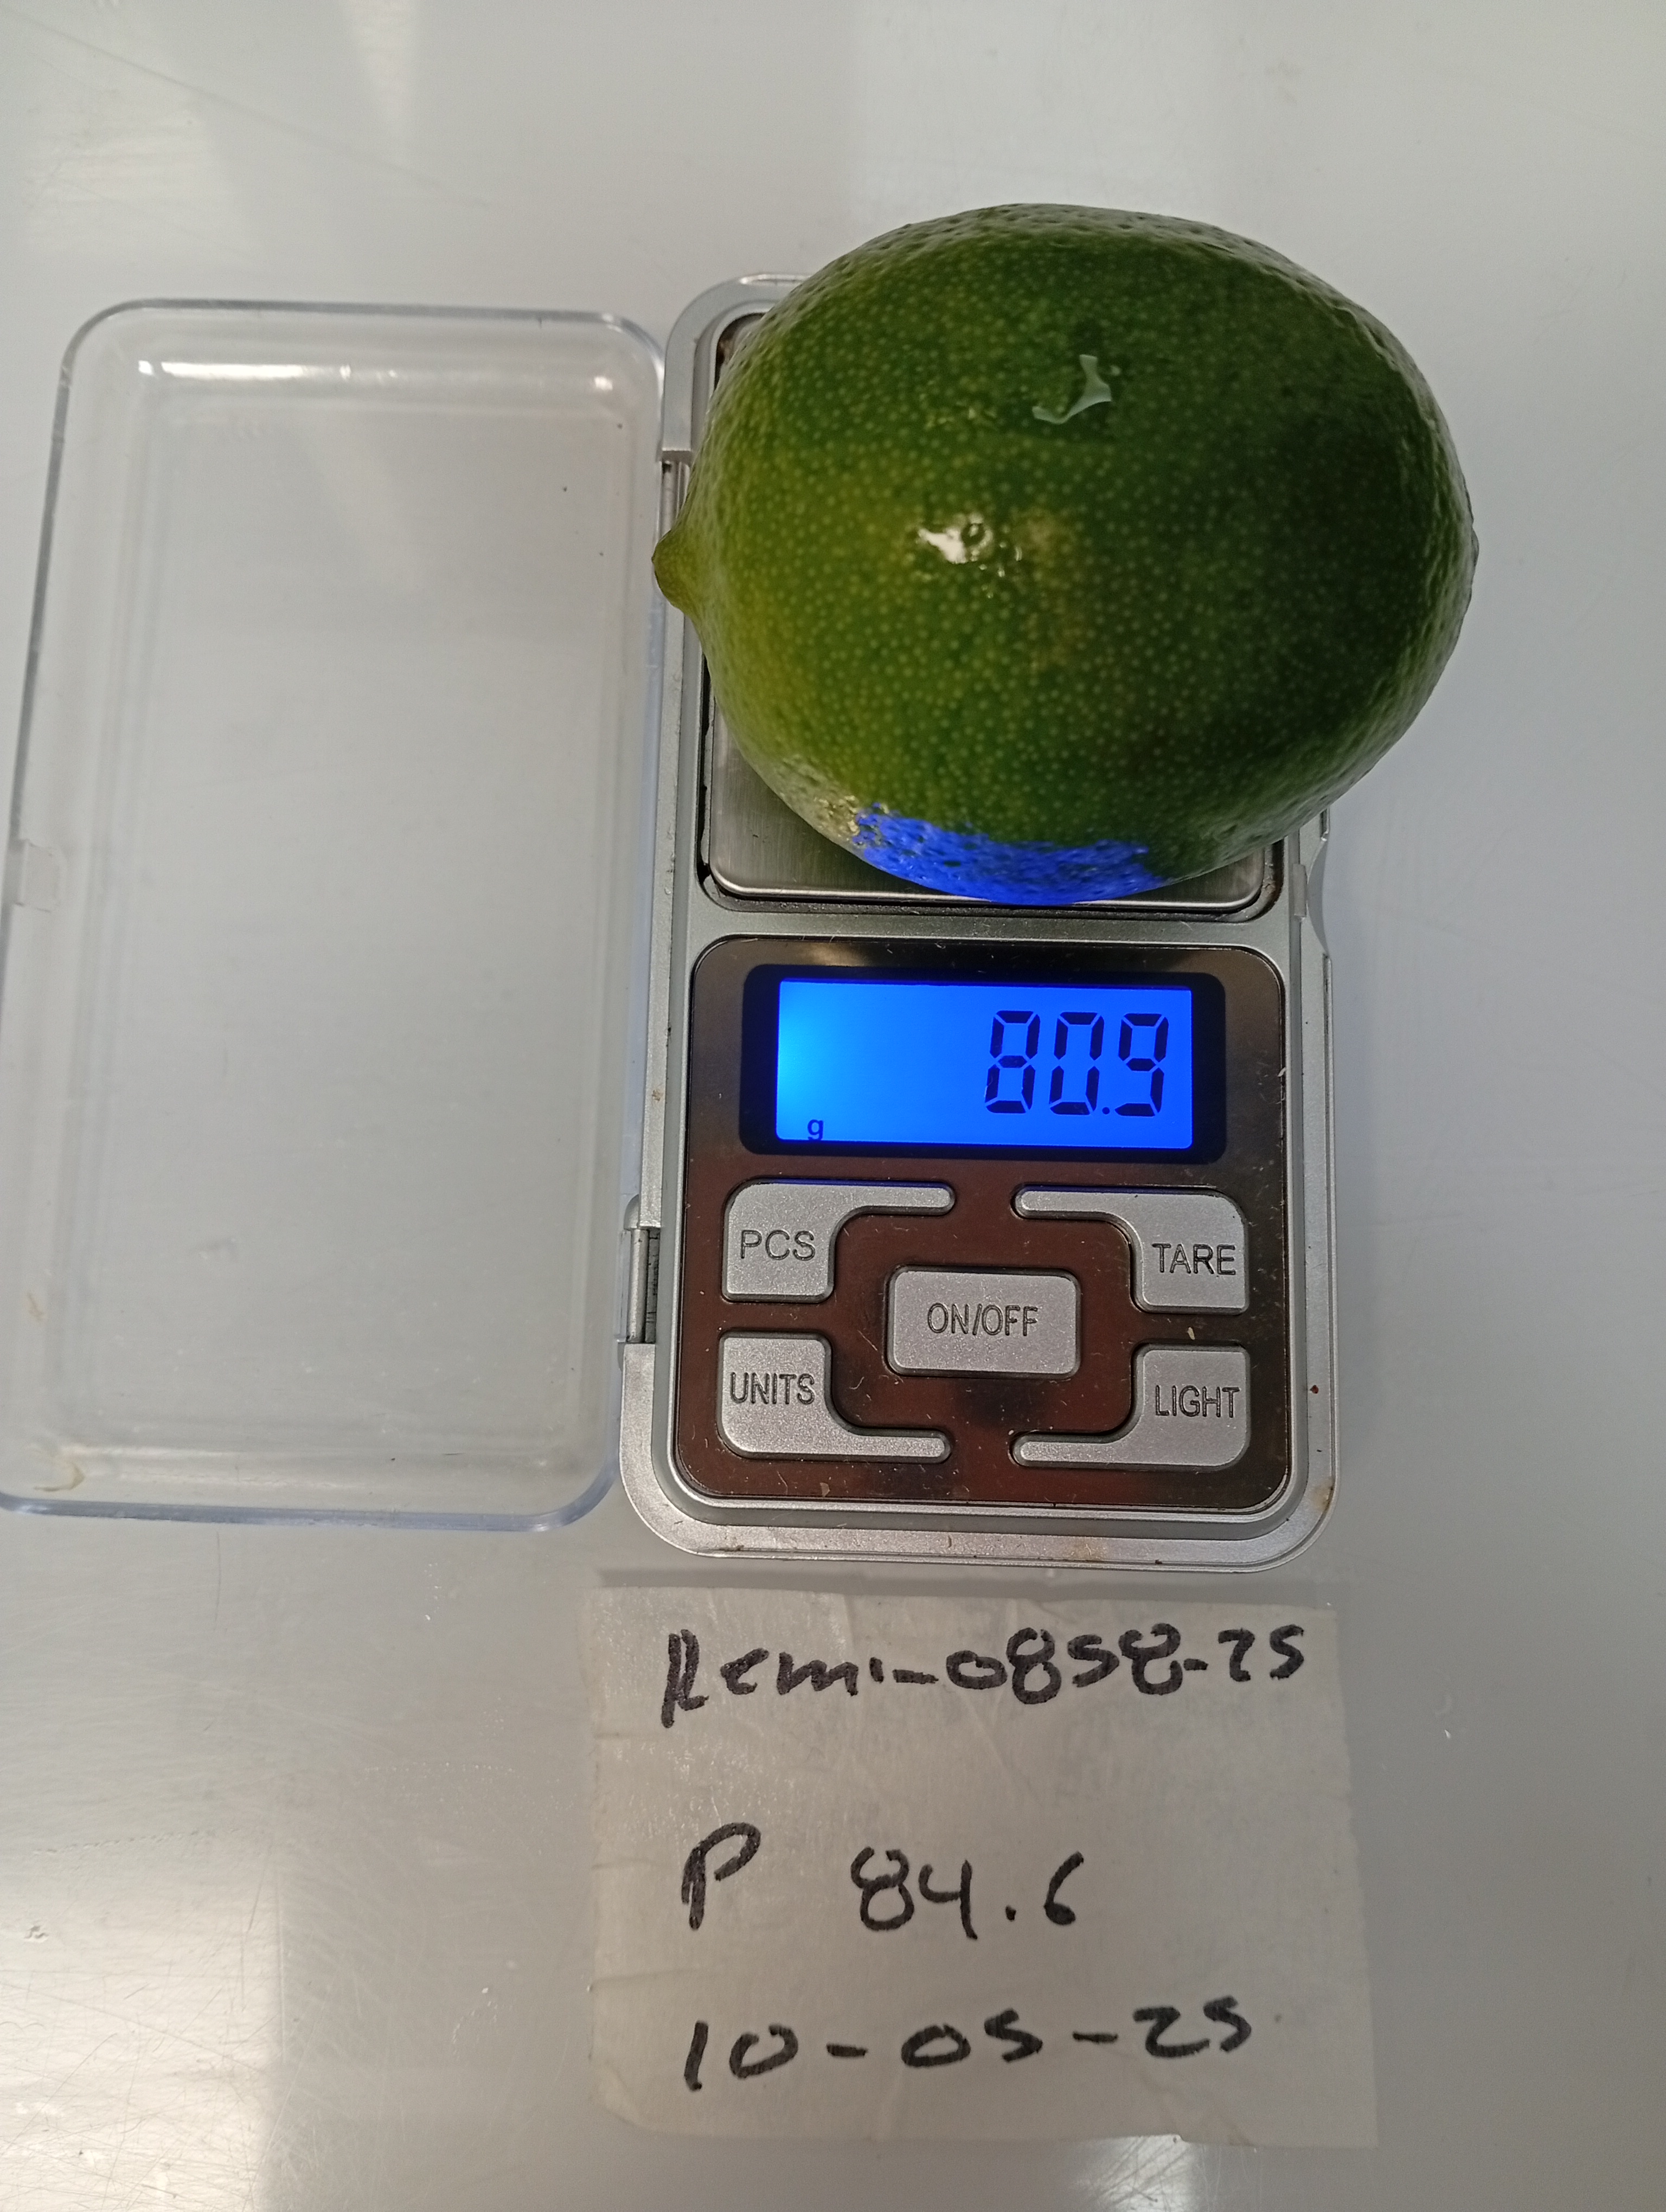 80.9
g
PCS
TARE
ON/OFF
UNITS
LIGHT
Remi-0858-25
P 84.6
10-05-25